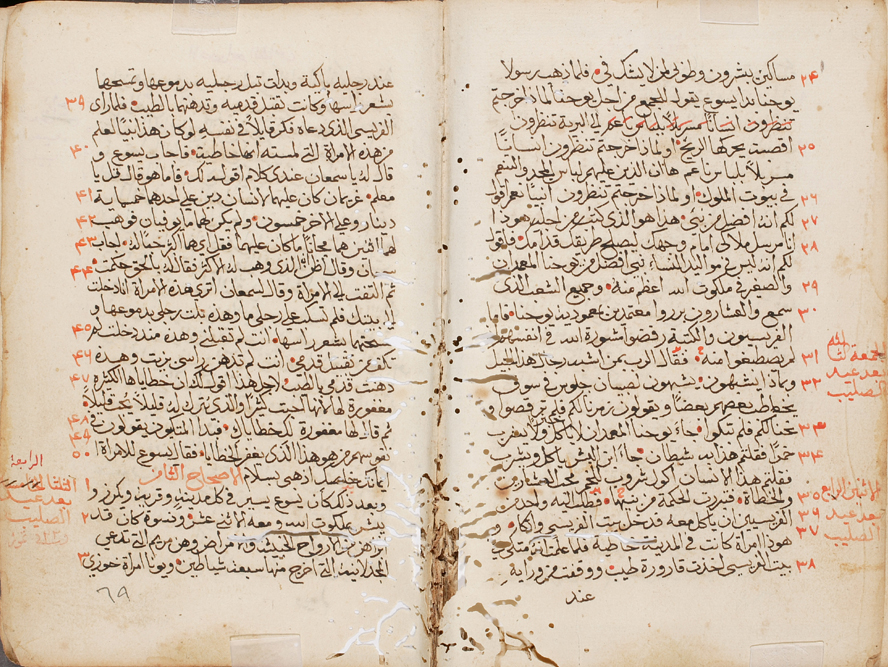 مساكين يبشرون وطوبى لمن لا يشك فيّ فلما ذهب رسولا ٢٤
يوحنا بدا يسوع يقول للجمع من اجل يوحنا لماذا خرجتم
تنظرون
اقصبة يحركها الريح او لماذا خرجتم تنظرون انسانا ٢٥
سربلا بلباس ناعم ها ان الذين عليهم لباس المجد والتنعم
في بيوت الملوك او لماذا خرجتم تنظرون انبيا نعم اقول ٢٦
لكم انه افضل من نبي هذا هو الذي كتب من اجله هوذا ٢٧
انا مرسل ملاكي امام وجهك ليصلح طريقك قدامك فاقول ٢٨
لكم انه ليس في مواليد النساء نبي افضل من يوحنا المعمدان
والصغير في ملكوت الله اعظم منه وجميع الشعب الذي ٢٩
سمع والعشارون برروا معتمدين بمعمودية يوحنا فاما ٣٠
الفريسيون والكتبة رفضوا مشورة الله في انفسهم اذ
لم يصطبغوا منه فقال الرب بمن اشبه رجال هذا الجيل ٣١
وبماذا يشبهون يشبهون لصبيان جلوس في سوق ٣٢
يخاطب بعضهم بعضا ويقولون زمرنا لكم فلم ترقصوا و
نحنا لكم فلم تبكوا جاء يوحنا المعمدان لا ياكل ولا يشرب ٣٣
خمرا فقلتم هذا به شيطان جاء ابن البشر ياكل ويشرب ٣٤
فقلتم هذا الانسان اكول شروب للخمر محب العشارين
والخطاة فتبررت الحكمة من بنيها فطلب اليه واحد من ٣٥ ٣٦
الفريسيين ان ياكل معه فدخل بيت الفريسي واتكا و ٣٧
هوذا امراة كانت في المدينة خاطية فلما علمت انه متكي في
بيت الفريسي اخذت قارورة طيب ووقفت من ورايه ٣٨
عند
الجمعة
بعد عيد
الصليب
الاثنين الرابع
بعد عيد
الصليب
عند رجليه باكية وبدات تبل رجليه بدموعها وتمسحهما
بشعر راسها وكانت تقبل قدميه وتدهنهما بالطيب فلما راى ٣٩
الفريسي الذي دعاه فكر قايلا في نفسه لو كان هذا نبيا لعلم
من هذه الامراة التي لمسته انها خاطية فاجاب يسوع و ٤٠
قال له يا سمعان عندي كلام اقوله لك فاما هو قال قل يا
معلم غريمان كان عليهما لانسان دين على احدهما خمسماية ٤١
دينار وعلى الاخر خمسون ولم يكن لهما ما يوفيان فوهب ٤٢
لهما اثنين هما مجانا ما كان عليهما فقل ايهما اكثر حبا له اجاب ٤٣
سمعان وقال اظن الذي وهب له الاكثر فقال له بالحق حكمت
ثم التفت الى الامراة وقال لسمعان اترى هذه الامراة انا دخلت ٤٤
الى بيتك فلم تسكب على رجلي ماء وهذه بلت رجلي بدموعها و
مسحتهما بشعر راسها انت لم تقبلني وهذه منذ دخلت لم ٤٥
تكف من تقبيل قدمي انت لم تدهن راسي بزيت وهذه ٤٦
دهنت قدمي بالطيب لاجل هذا اقول لك ان خطاياها الكثيرة ٤٧
مغفورة لها لانها احبت كثيرا والذي يترك له قليلا يحب قليلا
ثم قال لها مغفورة لك خطاياك فبدا المتكئون يقولون في ٤٨ ٤٩
نفوسهم من هو هذا الذي يغفر الخطايا فقال يسوع للامراة ٥٠
ايمانك خلصك اذهبي بسلام الاصحاح الثامن
وبعد ذلك كان يسوع يسير في كل مدينة وقرية ويكرز و ١
يبشر بملكوت الله ومعه الاثني عشر ونسوة كان قد ٢
ابراهن من الارواح الخبيثة والامراض وهن مريم التي تدعى
المجدلانية التي اخرج منها سبعة شياطين ويونا امراة خوزي ٣
الرابعة
بعد عيد
الصليب
٦٩